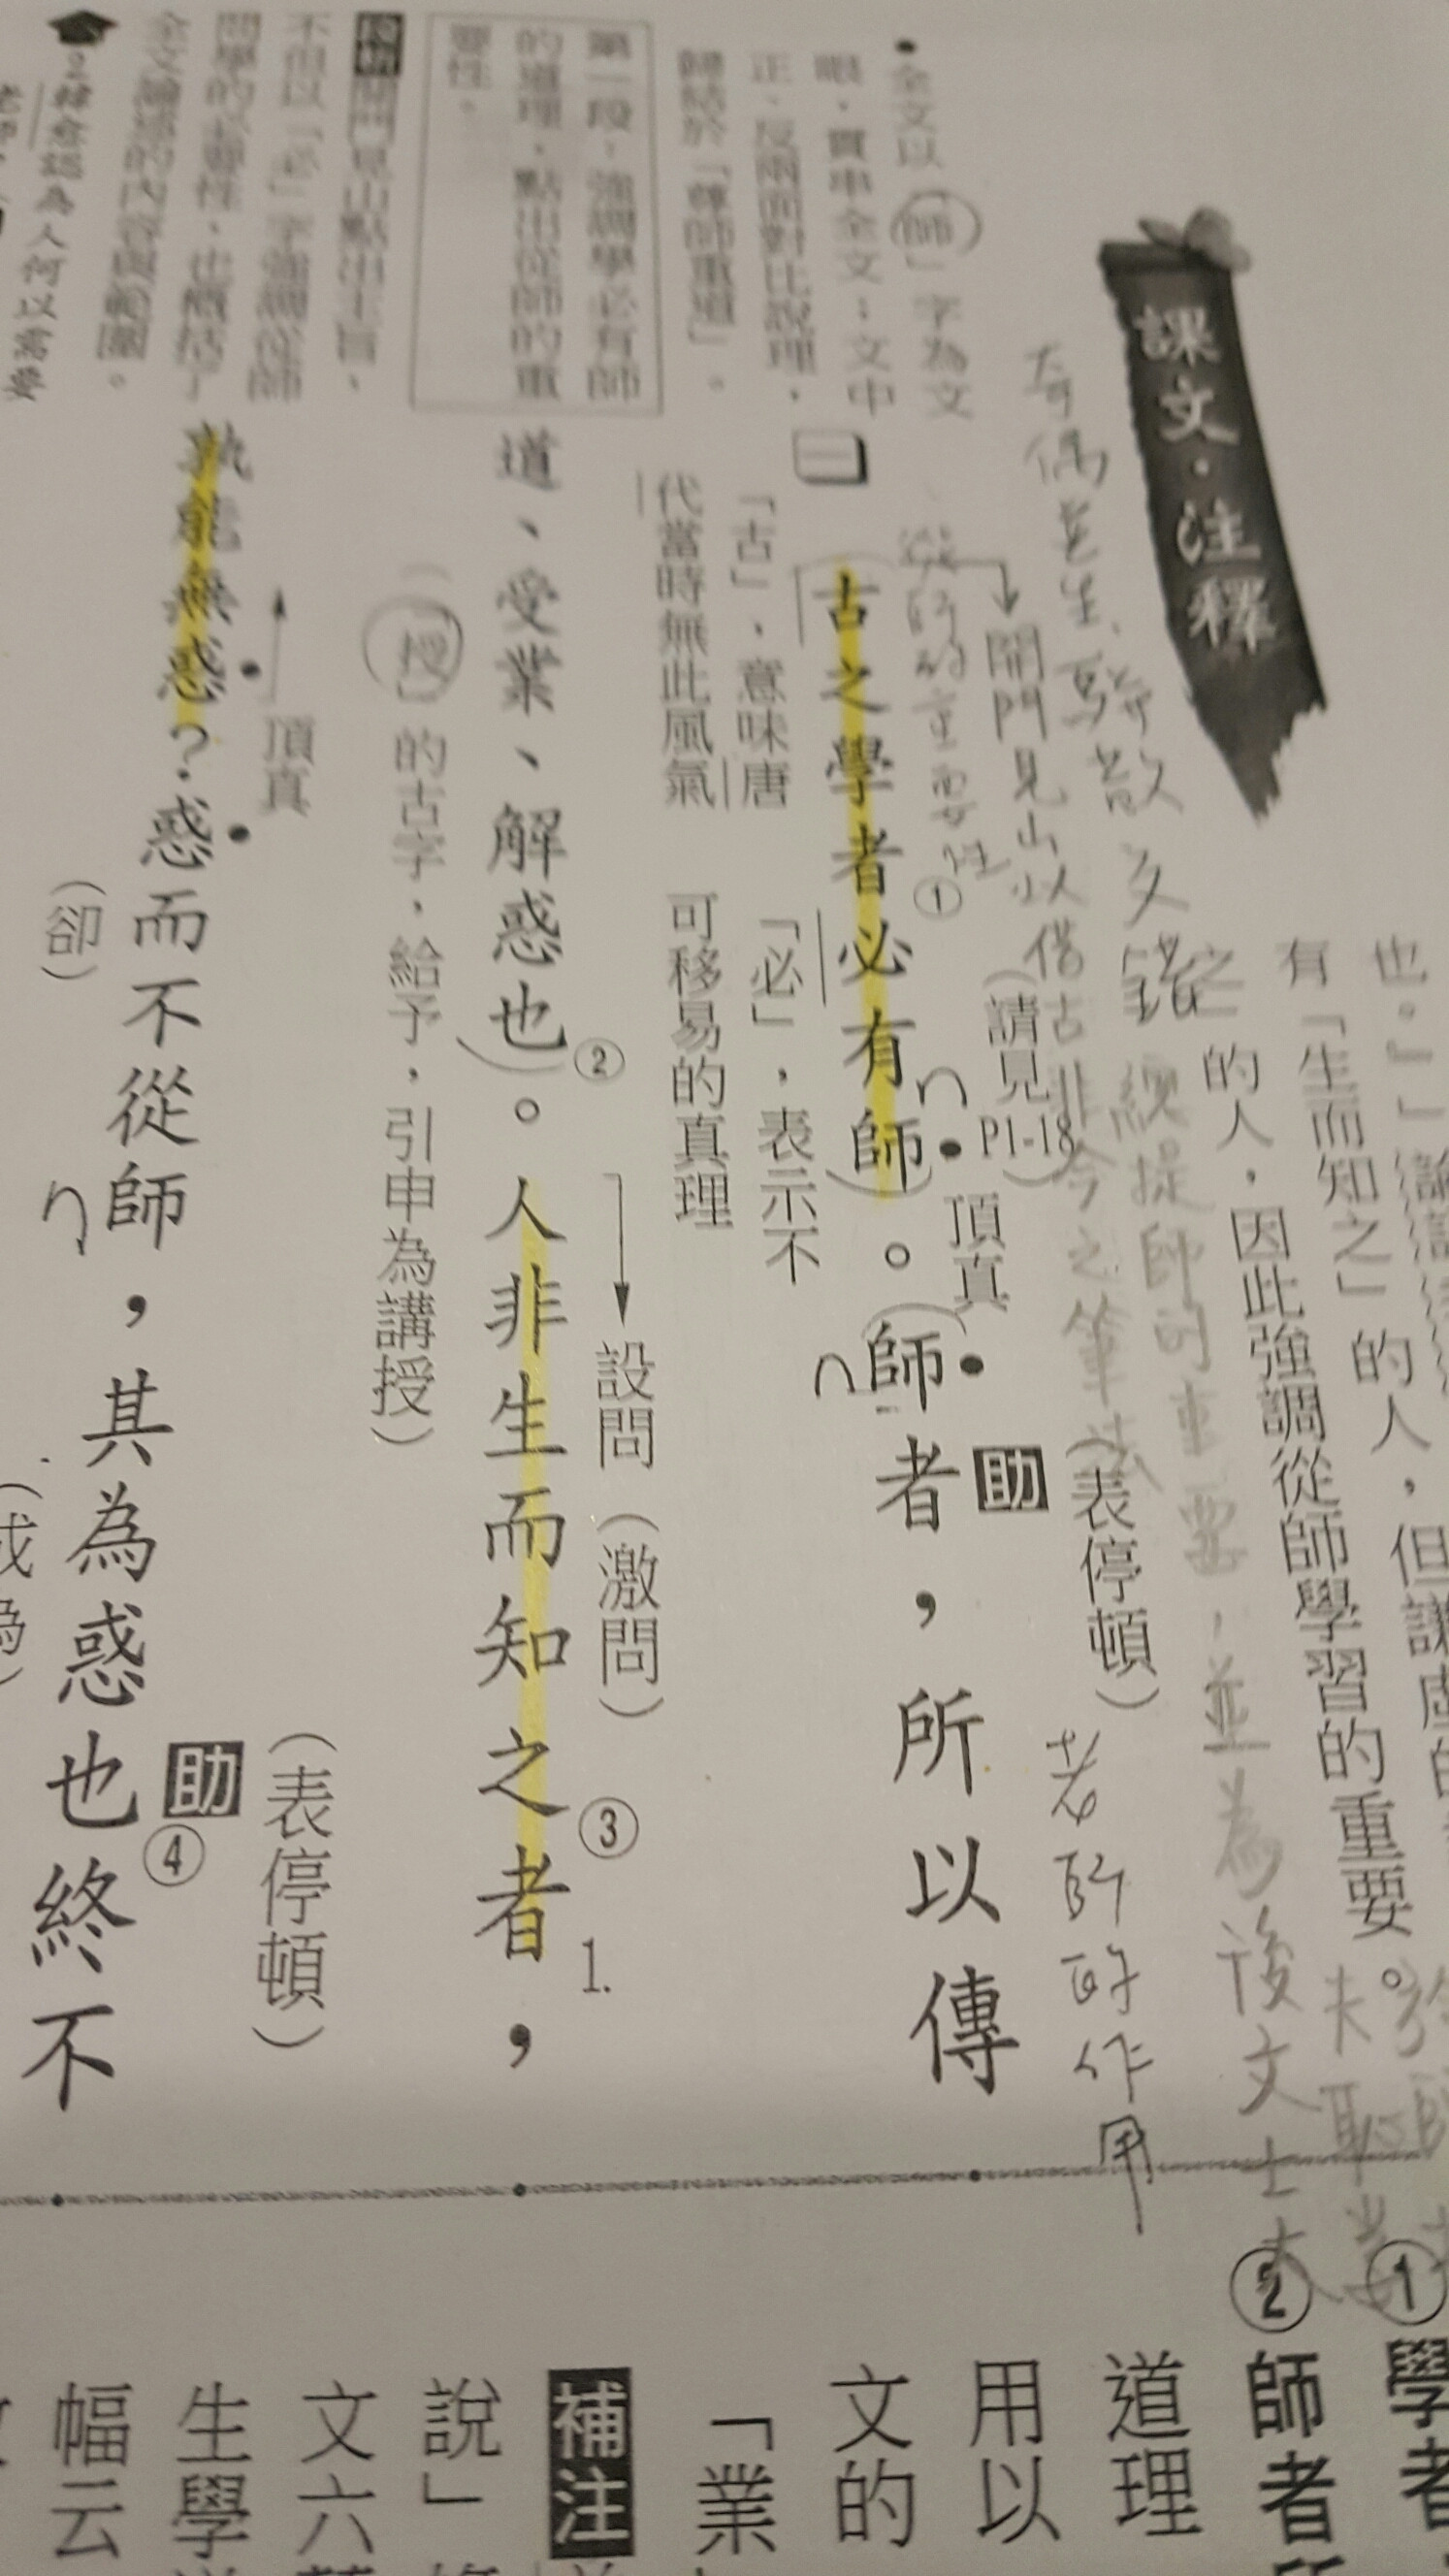 課文・注釋
也。」
有「生而知之」的人,但謙虛的
的人,因此強調從師學習的重要。
奇偶並生,駢散文錯
總提師的重要,並為後文士大
開門見山以借古非今之筆法
(請見P1-18)
從師的重要性
頂真
助
(表停頓)
老師的作用
一
古之學者必有師①。師者,所以傳
「古」,意味唐
代當時無此風氣
「必」,表示不
可移易的真理
設問(激問)
道、受業、解惑也②。人非生而知之者③,
1.
(「授」的古字,給予,引申為講授)
頂真
助
(表停頓)
孰能無惑?惑而不從師,其為惑也④終不
(卻)
(成為)
•全文以「師」字為文
眼,貫串全文;文中
正、反兩面對比說理,
歸結於「尊師重道」。
第一段,強調學必有師
的道理,點出從師的重
要性。
段析開門見山點出主旨,
不但以「必」字強調從師
問學的必要性,也概括了
全文論述的內容與範圍。
2韓愈認為人何以需要
老師?
①學者
②師者所
道理
用以
文的
「業
補注
說」
文六
生學
幅云